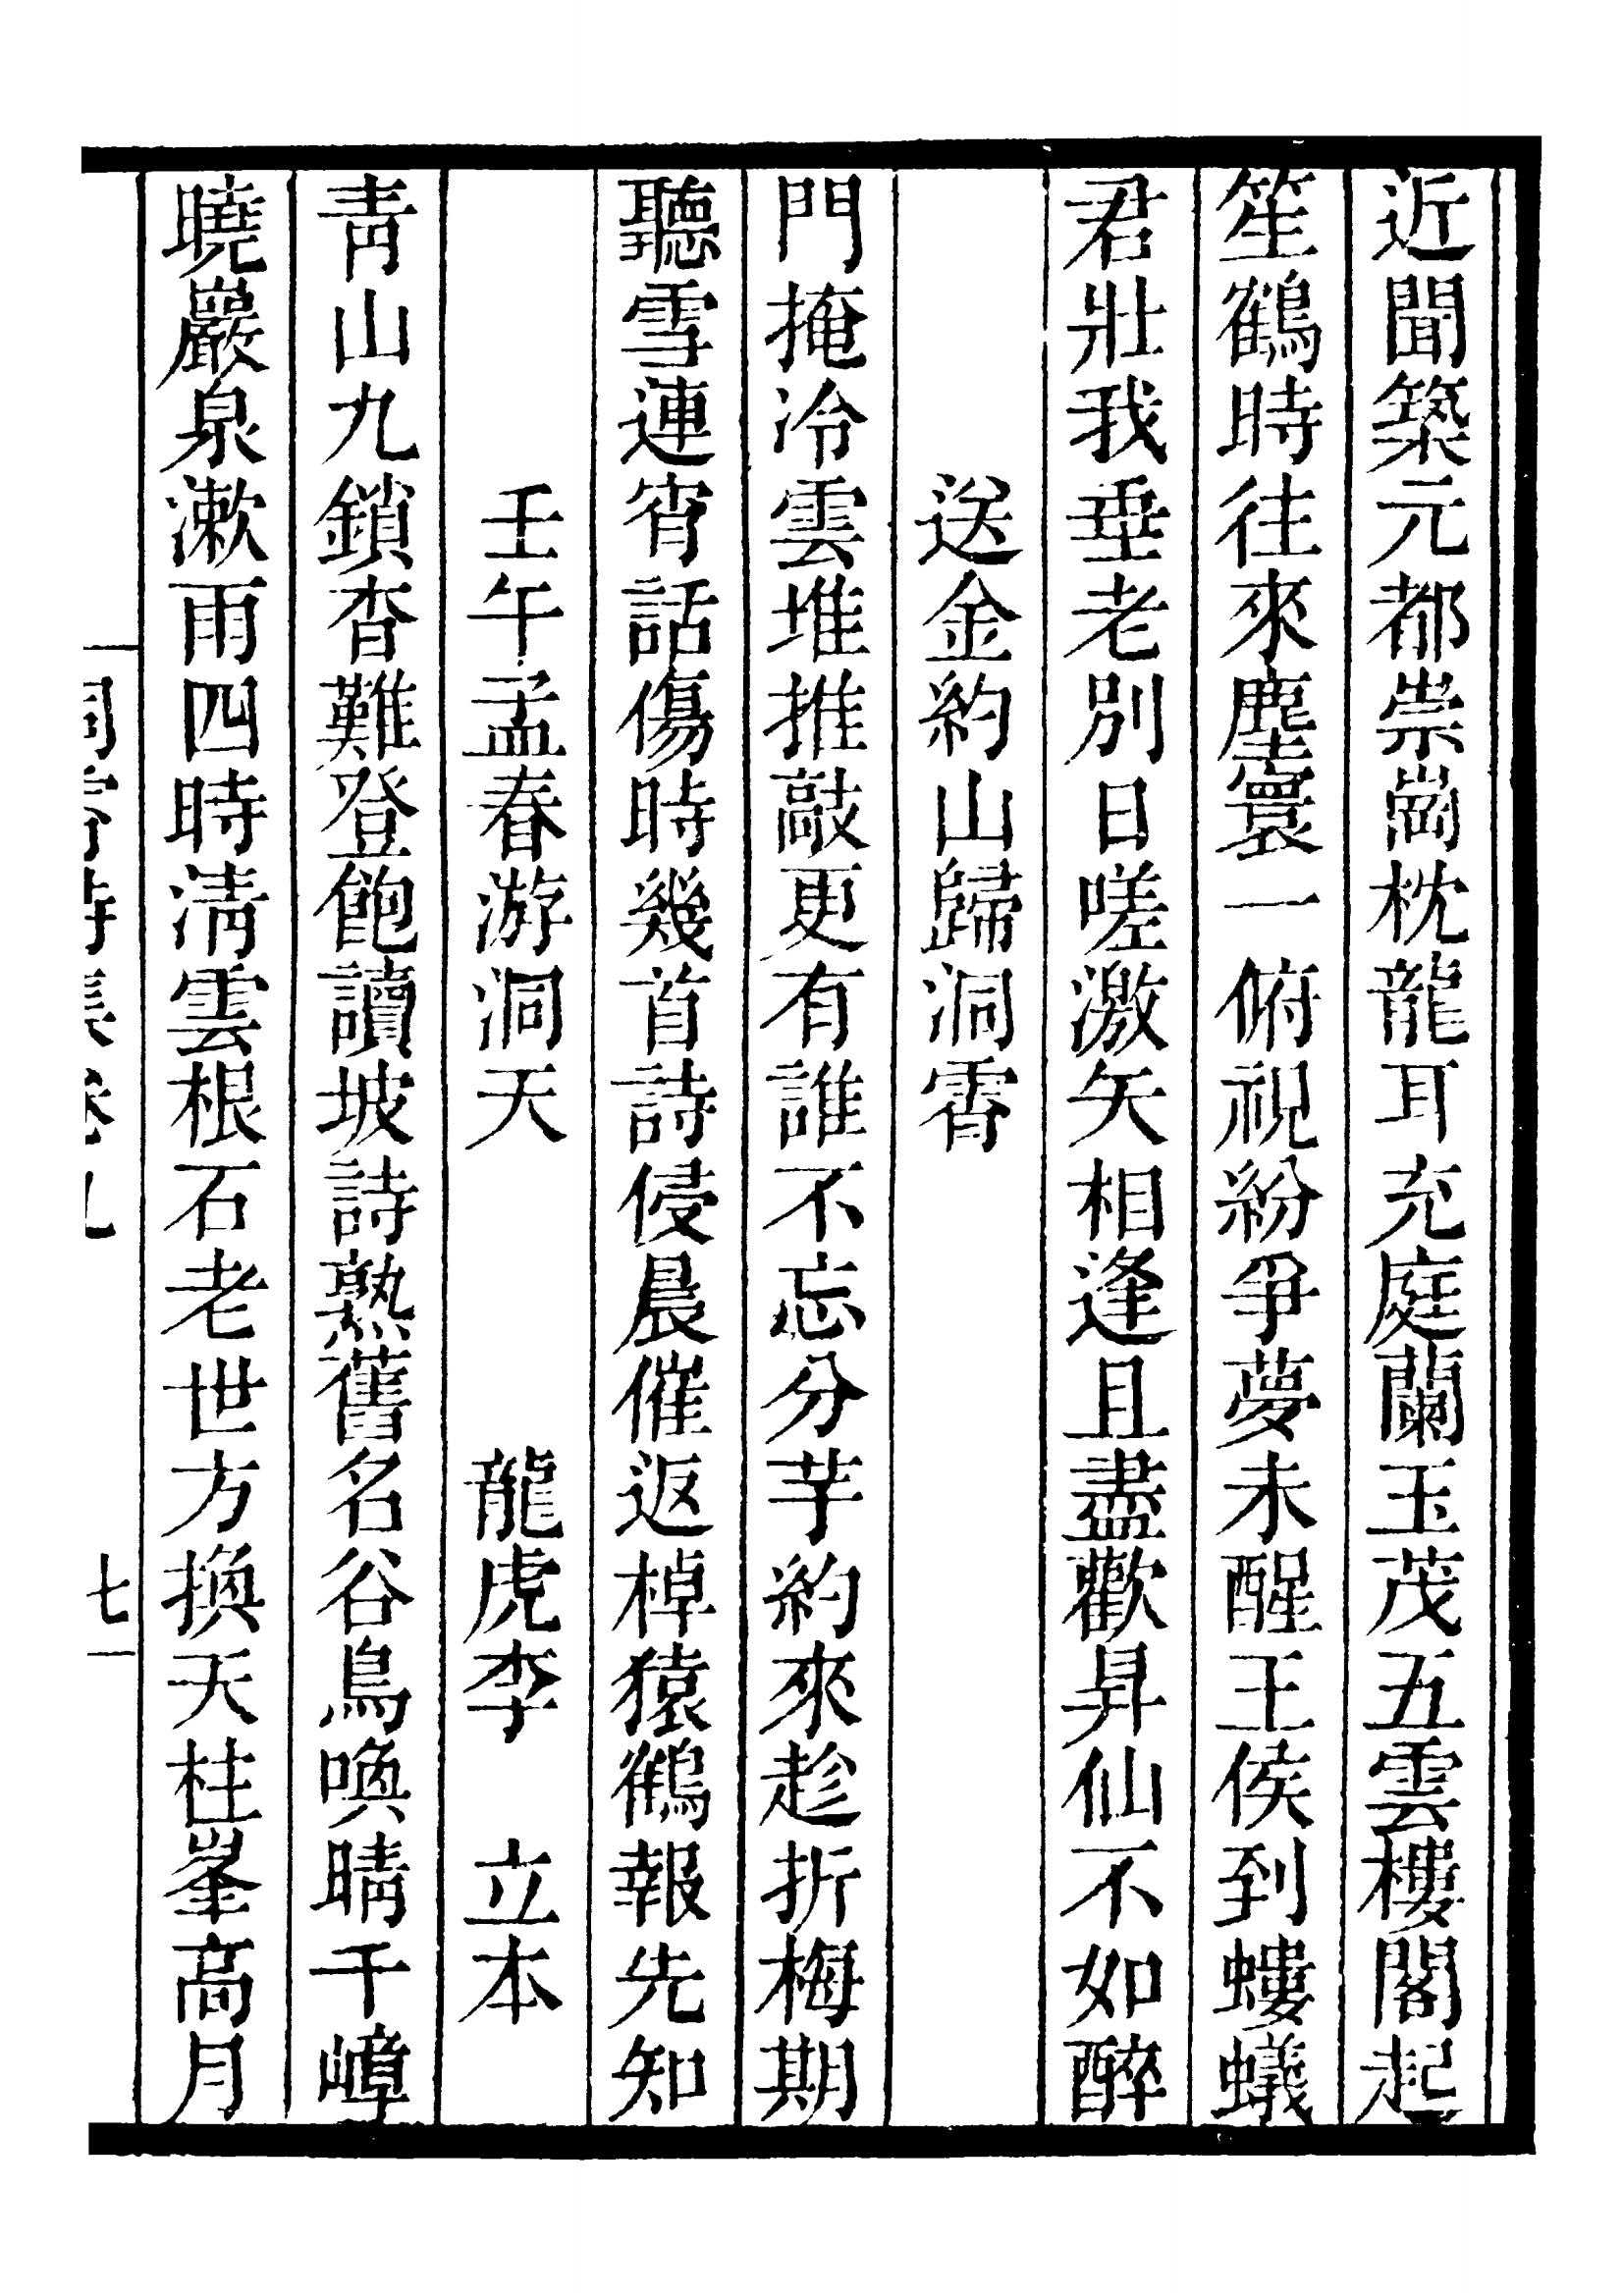 近聞築元都崇崗枕龍耳充庭蘭玉茂五雲樓閣起
笙鶴時往來塵寰一俯視紛爭夢未醒王侯到螻蟻
君壯我垂老別日嗟激矢相逢且盡歡昇仙不如醉
送金約山歸洞霄
門掩冷雲堆推敲更有誰不忘分芋約來趁折梅期
聽雪連宵話傷時幾首詩侵晨催返棹猿鶴報先知
壬午孟春游洞天 龍虎李 立本
靑山九鎖杳難登飽讀坡詩熟舊名谷鳥喚晴千嶂
曉巖泉漱雨四時清雲根石老世方換天柱峯高月
七